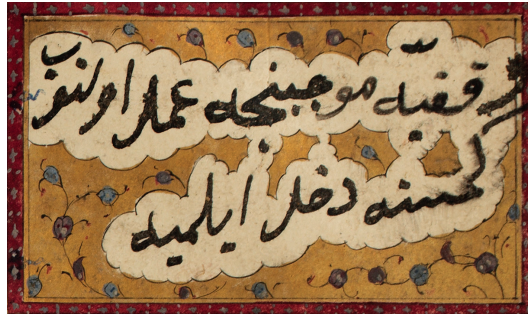 وقفیه موجبنجه عمل اولنوب
کمسنه دخل ایلمیه